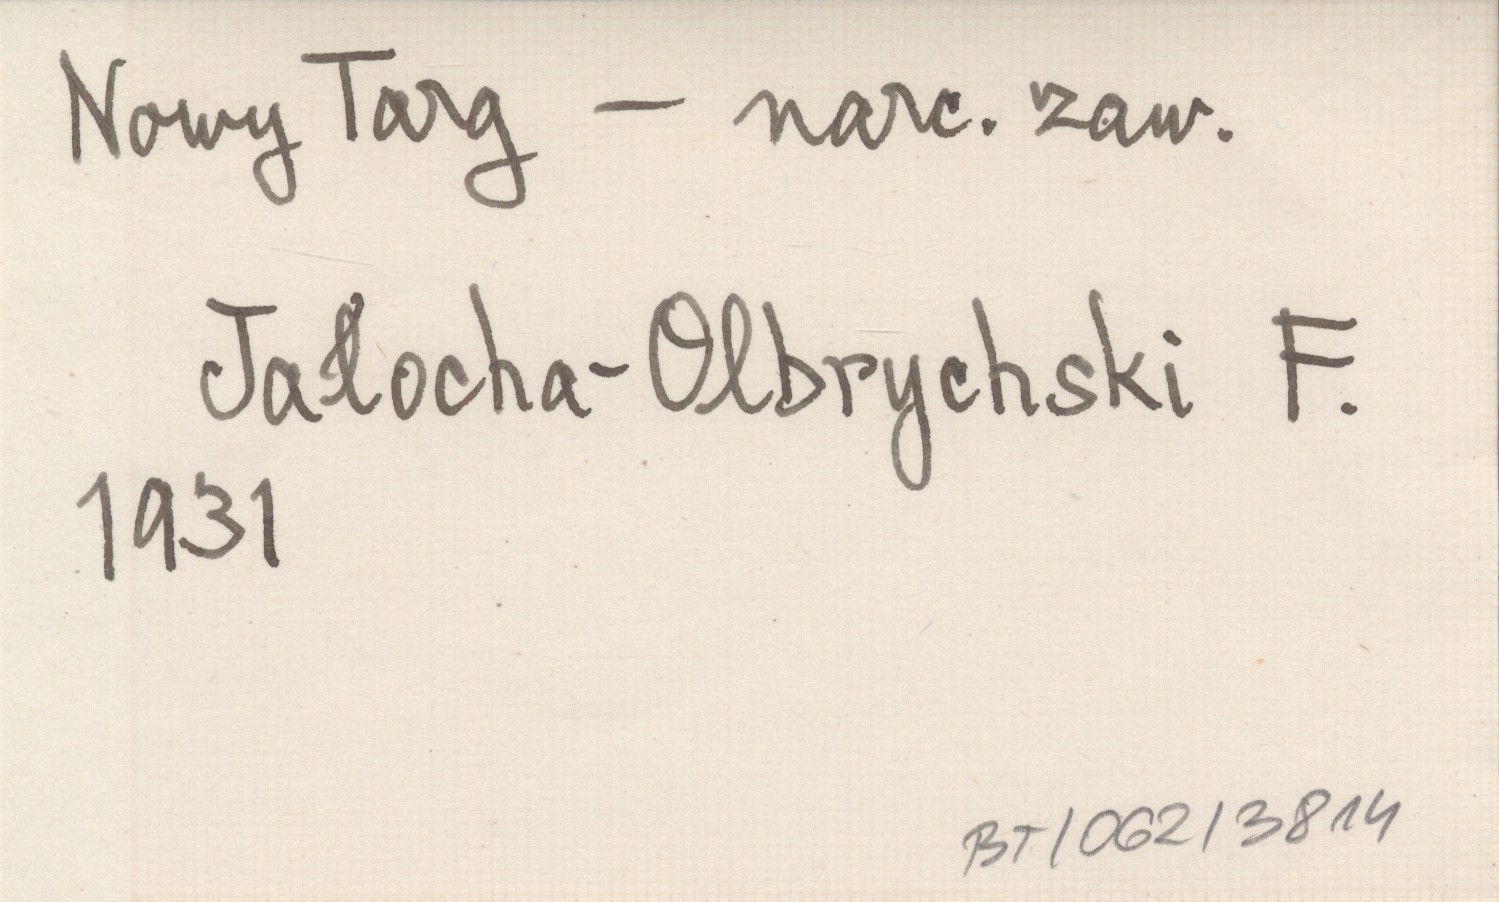 Nowy Targ — narc. zaw.
Jałocha-Olbrychski F.
1931
BT/062/3814